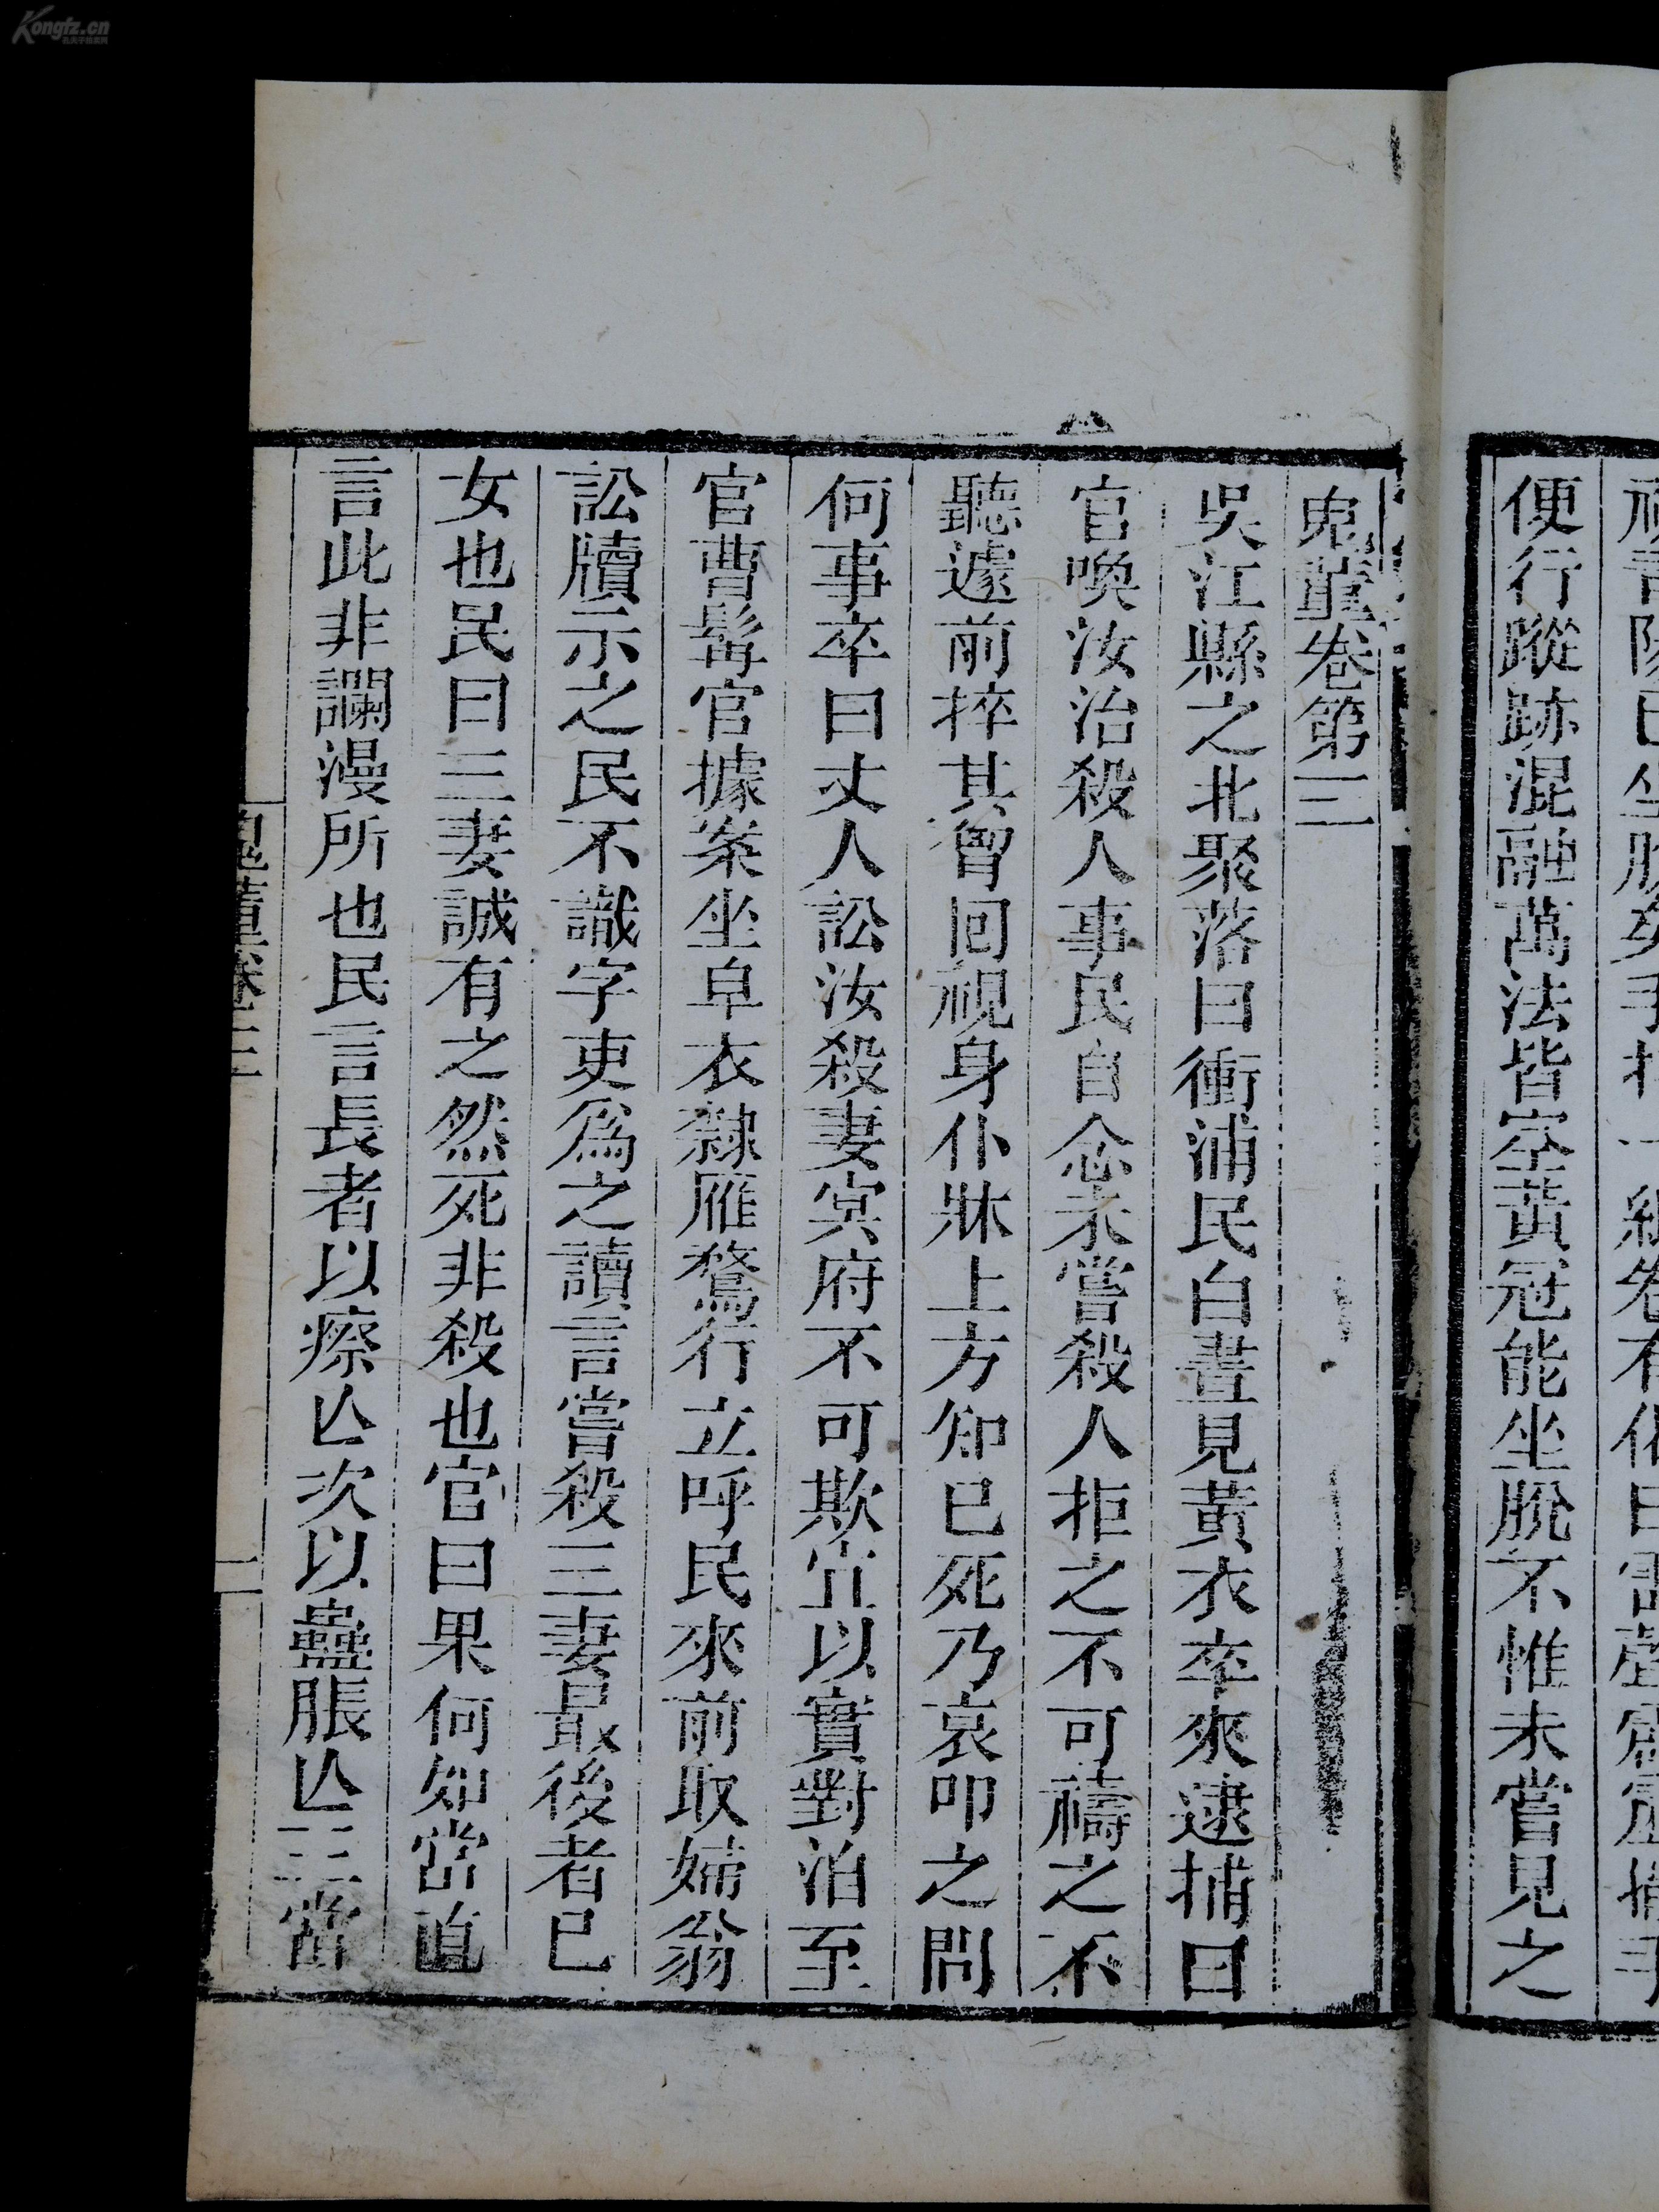 便行蹤跡混融萬法皆空黃冠能坐脫不惟未嘗見之
鬼董卷第三
吳江縣之北聚落曰衝浦民白晝見黃衣卒來逮捕曰
官喚汝治殺人事民自念未嘗殺人拒之不可禱之不
聽遽前捽其胷回視身仆牀上方知已死乃哀叩之問
何事卒曰丈人訟汝殺妻冥府不可欺宜以實對泊至
官曹髯官據案坐皁衣隸雁鶩行立呼民來前取婦翁
訟牘示之民不識字吏爲之讀言嘗殺三妻最後者己
女也民曰三妻誠有之然死非殺也官曰果何如當直
言此非讕漫所也民言長者以瘵亾次以蠱脹亾三當
鬼董卷三
一
Kongfz.cn
孔夫子旧书网